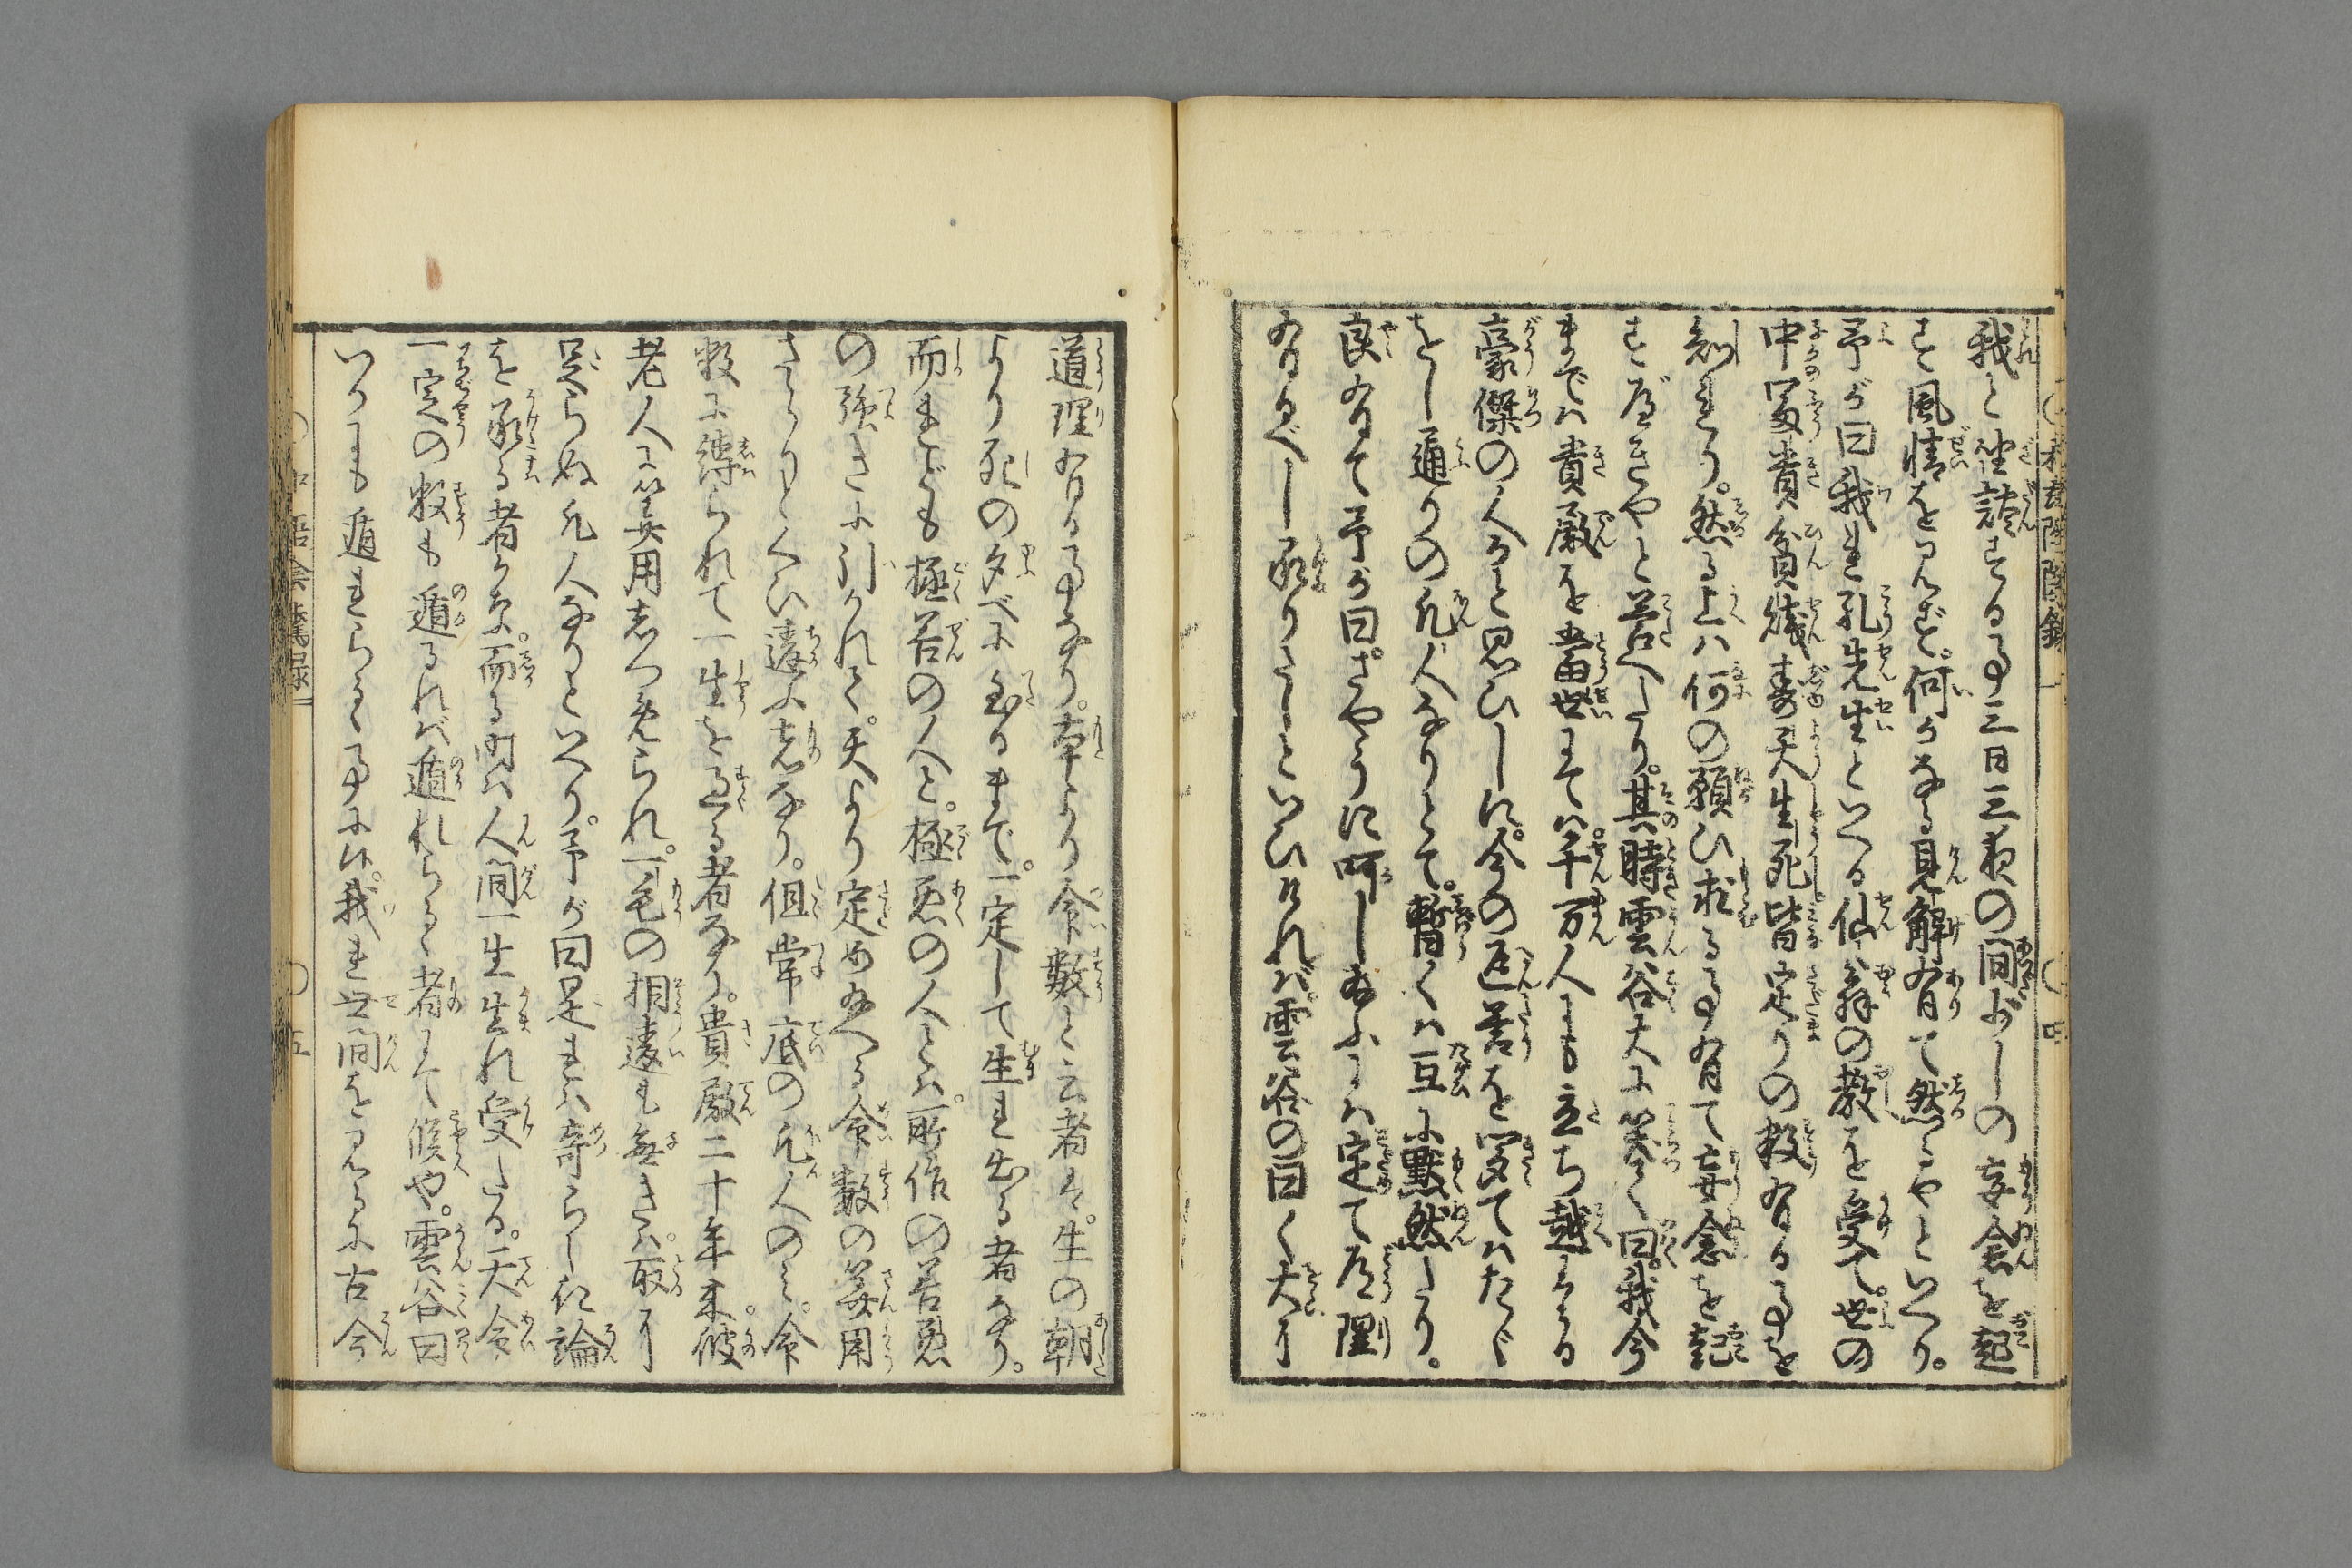 我と坐禅する事三日三夜の間少しの妄念を起
す風情を見ず。何かなる見解有て然るやといへり。
予が曰我れ孔先生といへる仙翁の教を受て。世の
中冨貴貧賤寿夭生死皆定りの数有る事を
知れり。然る上ハ何の願ひ求る事有て妄念を起
すべきやと答へたり。其時雲谷大に笑て曰。我今
まてハ貴殿を當世にてハ。千万人にも立ち越えたる
豪傑の人かと思ひしに。今の返答を聞てハたゞ
をし通りの凡人なりとて。暫くハ互に黙然たり。
良有て予が曰。さやうに呵し給ふハ定て道理
有るべし承りたしといひければ。雲谷の曰く大に
道理有る事なり。本より命数と云者は。生の朝
より死の夕べに至るまで。一定して生れ出る者なり。
而れども極善の人と。極悪の人とハ。所作の善悪
の強きに引かれて。天より定め給へる命数の筭用
さらりとくい違ふ者なり。但常底の凡人のミ。命
数に縛られて一生を過る者なり。貴殿二十年来。彼
老人に筭用志つめられ。一毛の相違も無きハ。取に
足らぬ凡人なりといへり。予が曰是れハ奇らしき論
を承る者かな。而る時ハ人間一生生れ受たる。天命
一定の数も遁るれバ遁れらるゝ者にて候や。雲谷曰
いかにも遁れらるゝ事に候。我れ世間を見るに古今